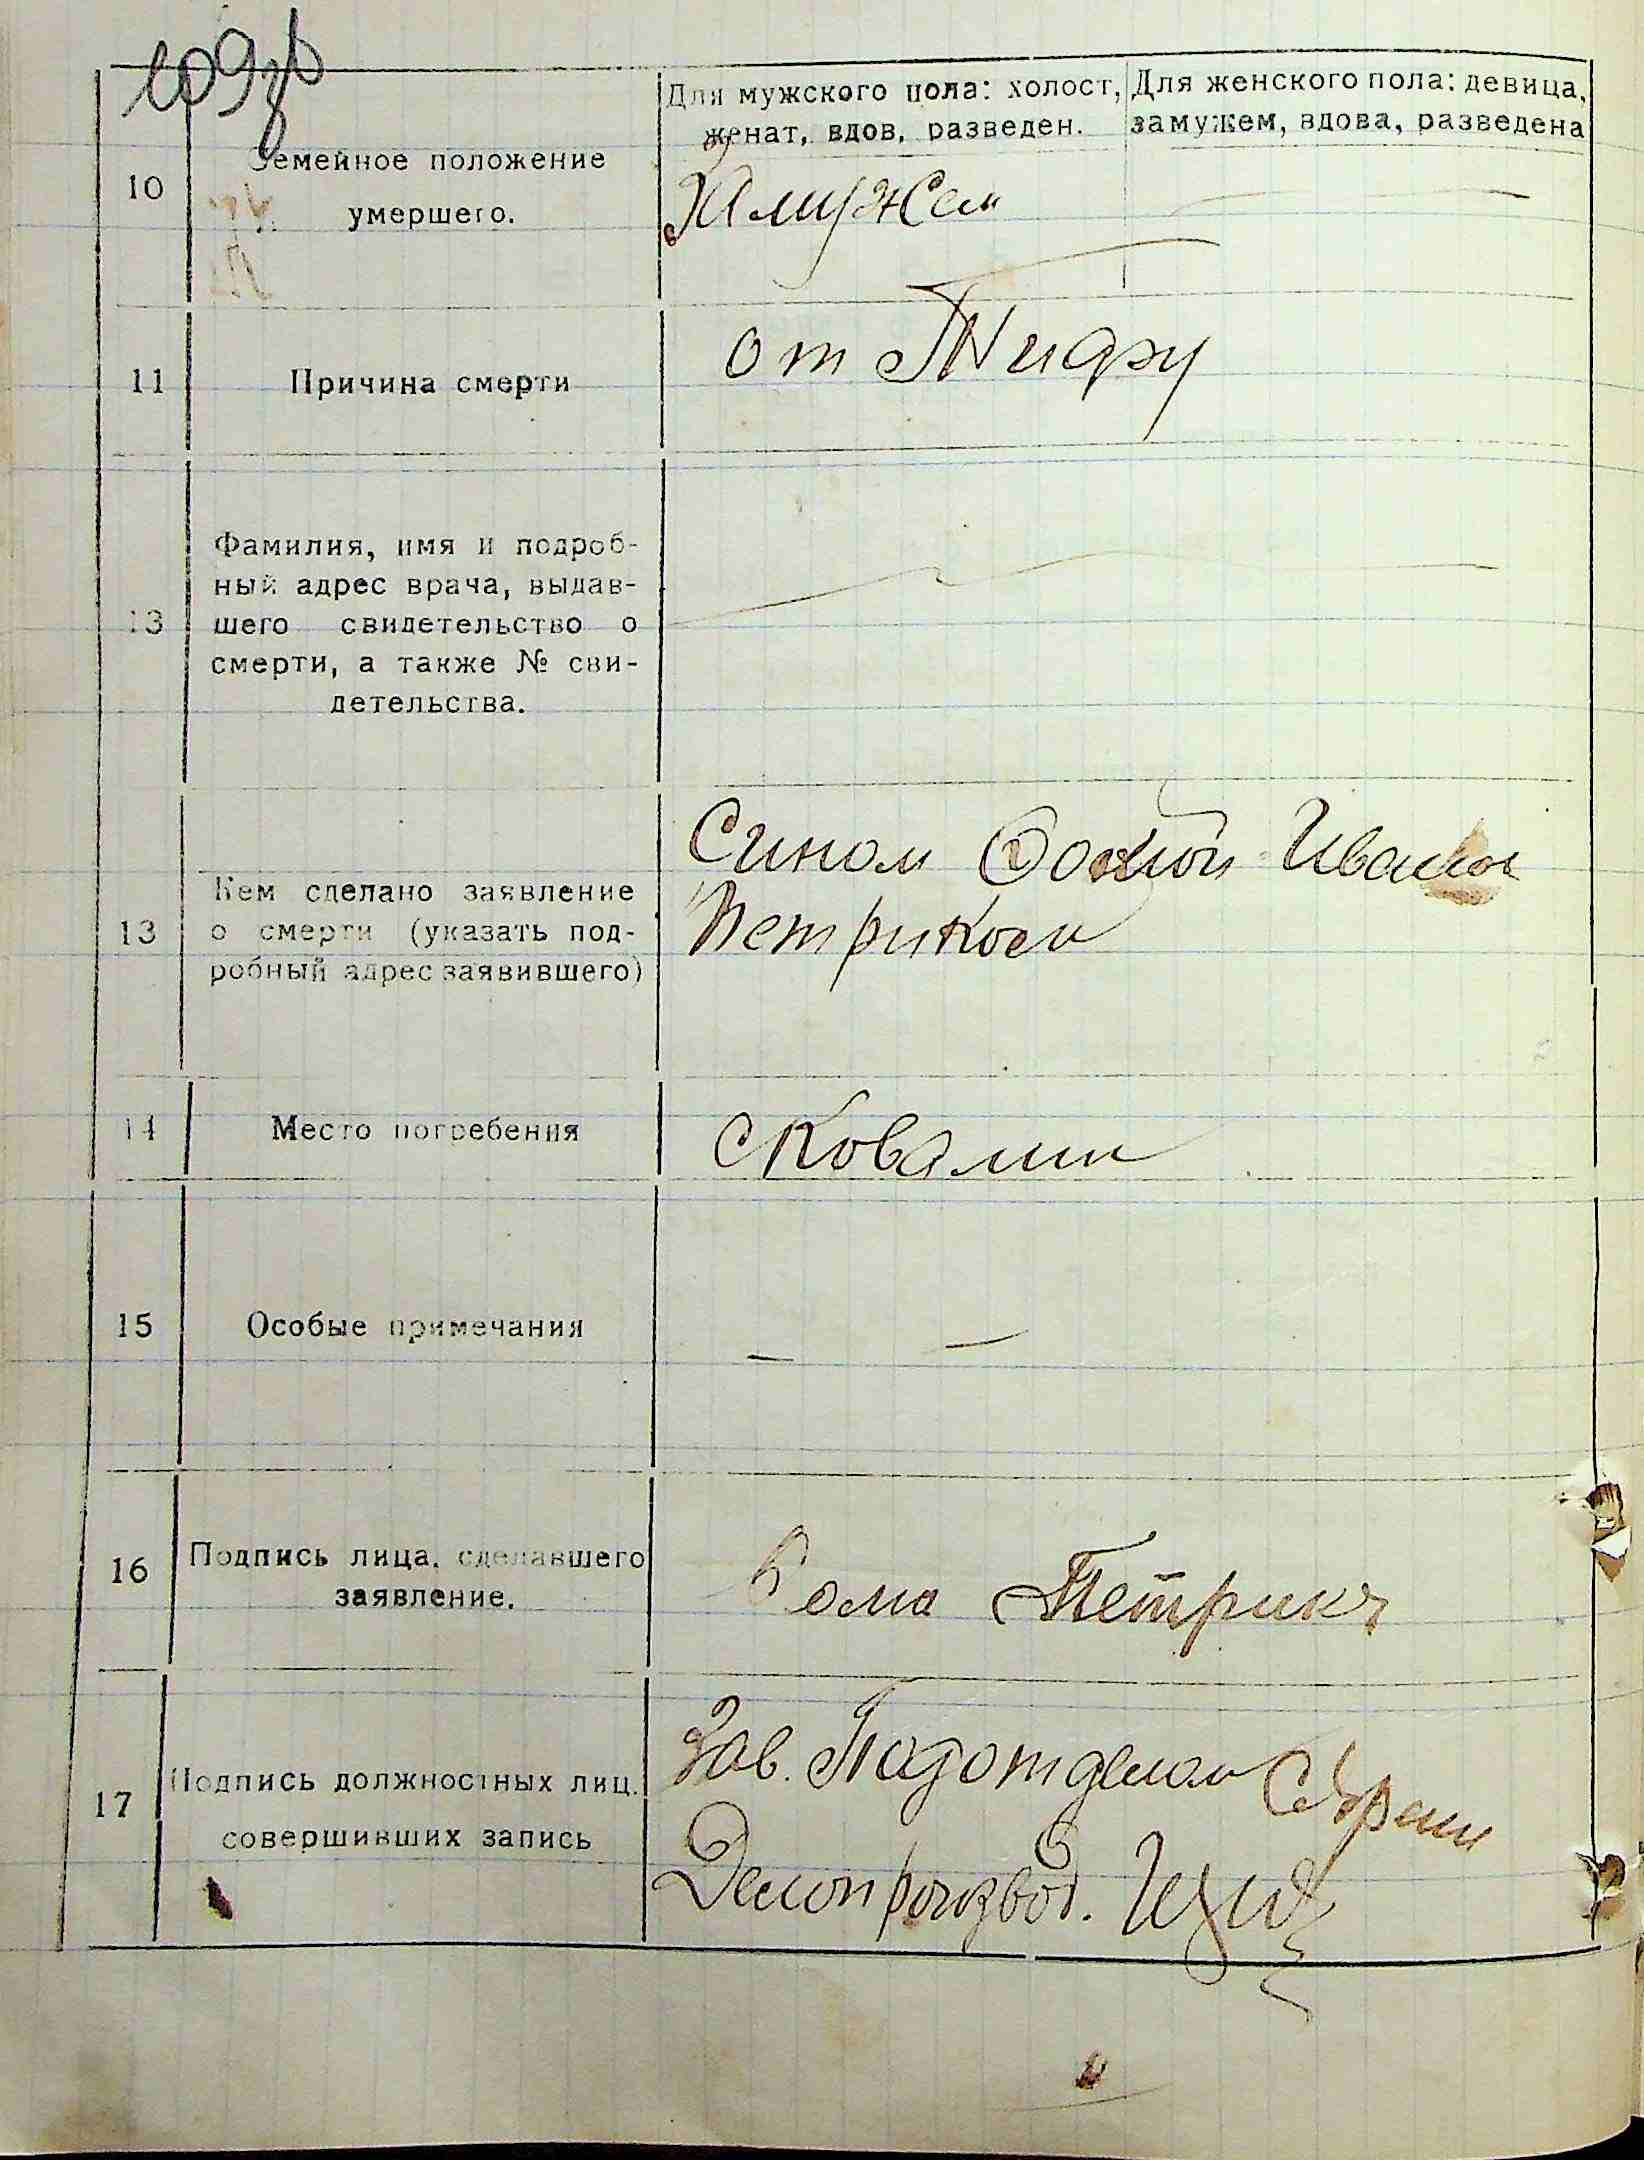 109зв
Для мужского пола: холост,
женат, вдов, разведен.
Для женского пола: девица,
замужем, вдова, разведена
10
Семейное положение
умершего.
Замужем
11
Причина смерти
от Тифу
13
Фамилия, имя и подроб-
ный адрес врача, выдав-
шего свидетельство о
смерти, а также № сви-
детельства.
13
Кем сделано заявление
о смерти (указать под-
робный адрес заявившего)
Сином Фомой
Петриком
14
Место погребения
с Ковалин
15
Особые примечания
— —
16
Подпись лица, сделавшего
заявление.
Фома Петрик
17
Подпись должностных лиц.
совершивших запись
Зав. Подотделом
Делопроизвод.